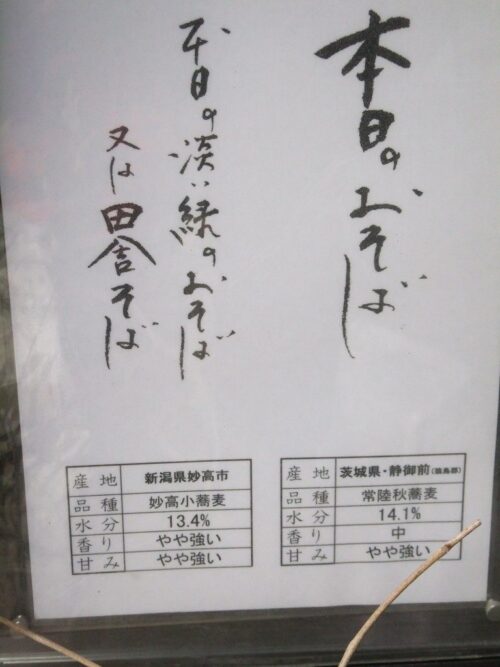 本日のおそば
平日の淡い緑のおそば
又は田舎そば
産地 茨城県・静御前
品種 常陸秋蕎麦
水分 14.1%
香り 中
甘み やや強い
産地 新潟県妙高市
品種 妙高小蕎麦
水分 13.4%
香り やや強い
甘み やや強い